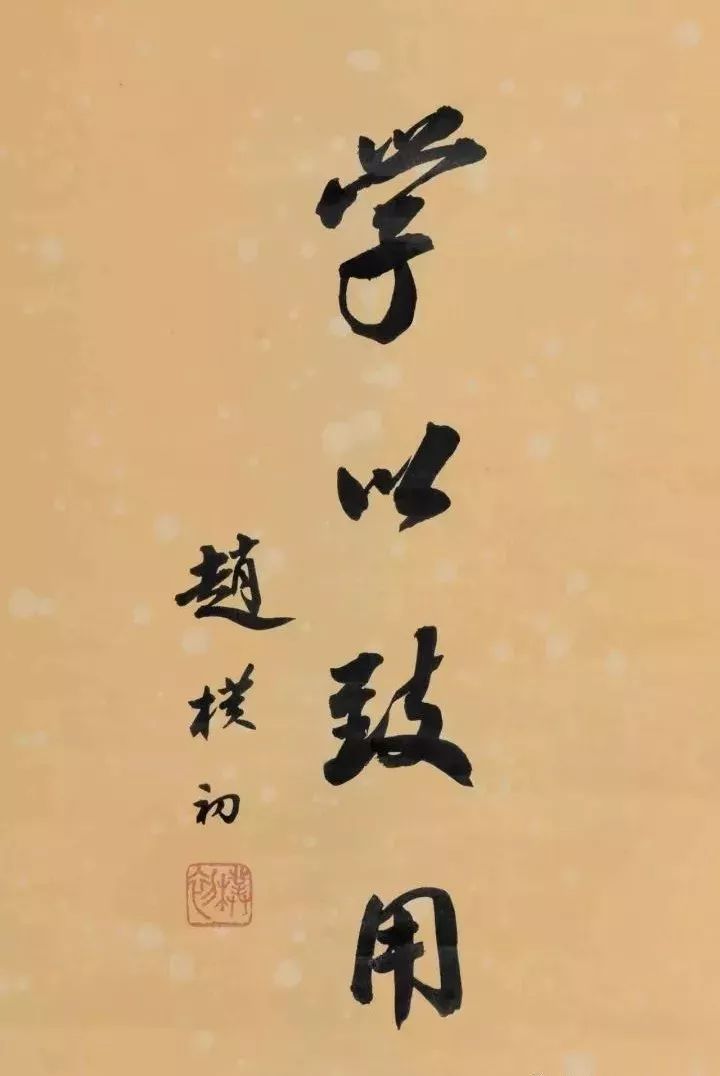 学以致用
趙樸初
樸初